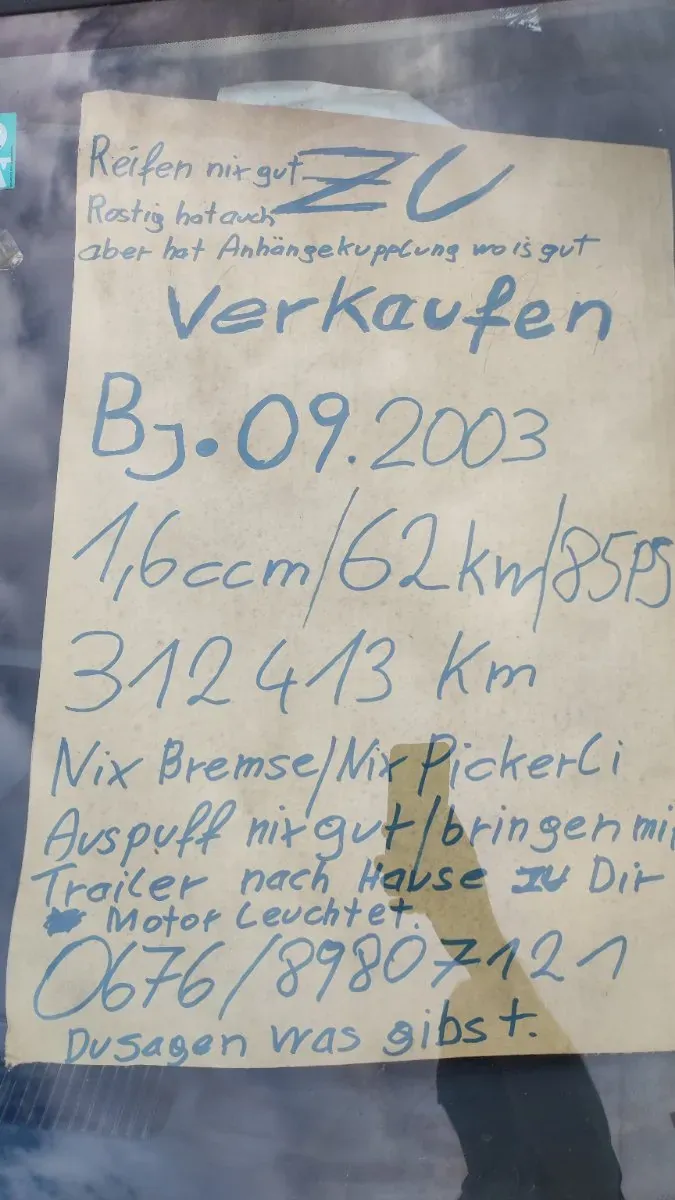 Reifen nix gut ZU
Rostig hat auch
aber hat Anhängekupplung wo is gut
Verkaufen
Bj. 09.2003
1,6ccm/62km/85PS
312 413 Km
Nix Bremse/Nix Pickerli
Auspuff nix gut/bringen mi
Trailer nach Hause zu Dir
Motor Leuchtet.
0676/89807121
Dusagen was gibst.